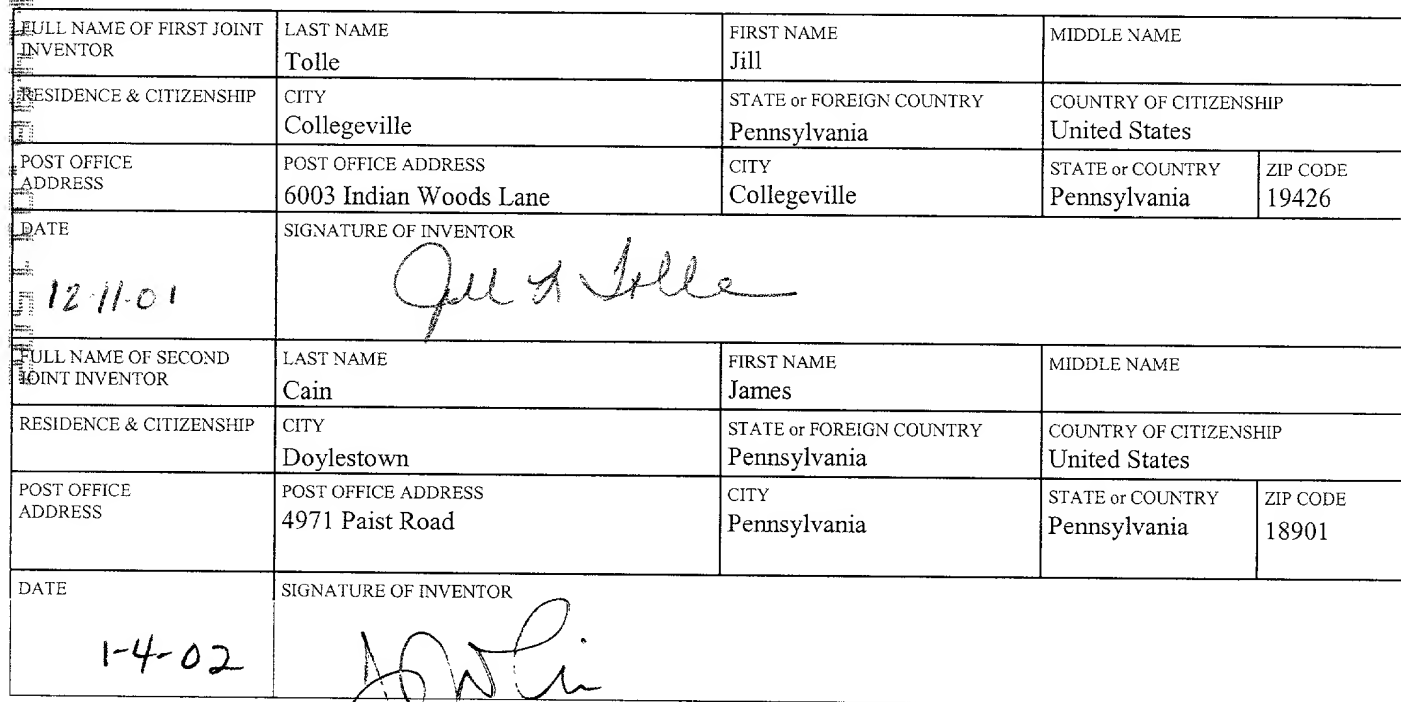 FULL NAME OF FIRST JOINT INVENTOR
LAST NAME
Tolle
FIRST NAME
Jill
MIDDLE NAME
RESIDENCE & CITIZENSHIP
CITY
Collegeville
STATE or FOREIGN COUNTRY
Pennsylvania
COUNTRY OF CITIZENSHIP
United States
POST OFFICE
ADDRESS
POST OFFICE ADDRESS
6003 Indian Woods Lane
CITY
Collegeville
STATE or COUNTRY
Pennsylvania
ZIP CODE
19426
DATE
12-11-01
SIGNATURE OF INVENTOR
Jill Tolle
FULL NAME OF SECOND
JOINT INVENTOR
LAST NAME
Cain
FIRST NAME
James
MIDDLE NAME
RESIDENCE & CITIZENSHIP
CITY
Doylestown
STATE or FOREIGN COUNTRY
Pennsylvania
COUNTRY OF CITIZENSHIP
United States
POST OFFICE
ADDRESS
POST OFFICE ADDRESS
4971 Paist Road
CITY
Pennsylvania
STATE or COUNTRY
Pennsylvania
ZIP CODE
18901
DATE
1-4-02
SIGNATURE OF INVENTOR